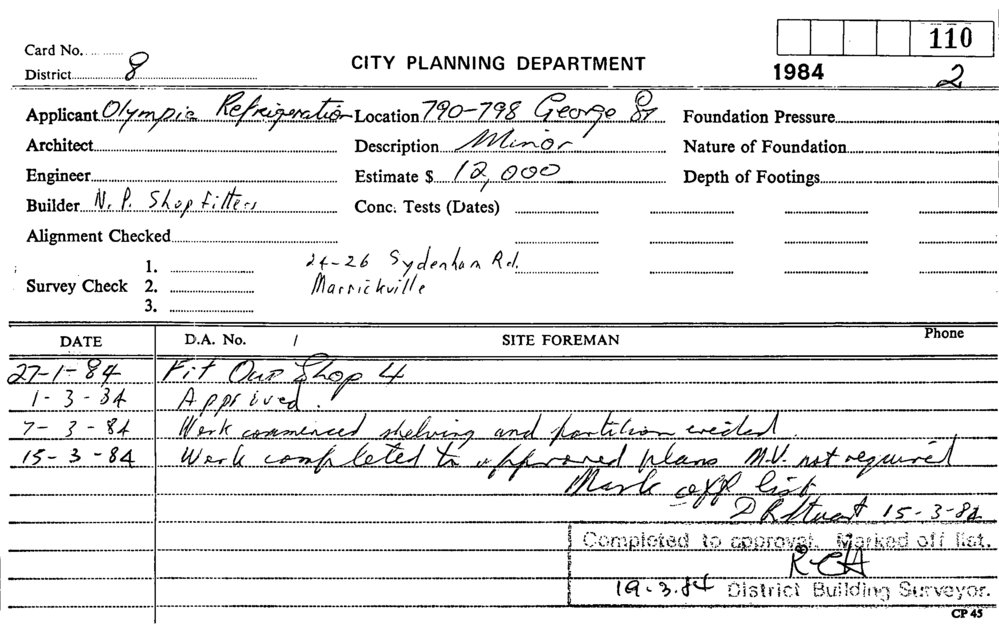 110
Card No.
District 8
CITY PLANNING DEPARTMENT
1984 2
Applicant Olympic Refrigeration Location 790-798 George St Foundation Pressure
Architect Description Minor Nature of Foundation
Engineer Estimate $ 12,000 Depth of Footings
Builder N.P. Shopfitters Conc. Tests (Dates)
Alignment Checked
24-26 Sydenham Rd.
1.
Survey Check 2. Marrickville
3.
DATE D.A. No. / SITE FOREMAN Phone
27-1-84 Fit Out Shop 4
1-3-84 Approved.
7-3-84 Work commenced shelving and partition erected.
15-3-84 Work completed to approved plans M.V. not required
Mark off list
D R Stuart 15-3-84
Completed to approval. Marked off list.
RCH
19.3.84 District Building Surveyor.
CP 45